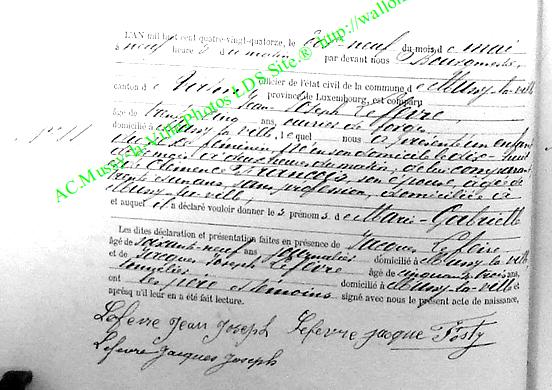 L'AN mil huit cent quatre-vingt-quatorze, le dix-neuf du mois d e mai
à neuf heure s d u matin par devant nous Bourgmestre,
officier de l'état civil de la commune d e Mussy-la-ville
canton d e Virton province de Luxembourg, est comparu
Jean Joseph Lefèvre,
âgé de trente cinq ans,
domicilié à Mussy la ville, lequel nous a présenté un enfant
du sexe féminin, né en son domicile le dix-huit
de mai à heures du matin, de lui comparant
et de Clémence François son épouse, âgée de
trente ans, sans profession, domiciliée à
Mussy-la-ville,
et auquel il a déclaré vouloir donner le s prénom s de Marie-Gabrielle
Les dites déclaration et présentation faites en présence de Jacques
âgé de soixante-neuf ans, journalier domicilié à Mussy-la-ville
et de Jacques Joseph Lefèvre âgé de cinquante trois ans,
domicilié à Mussy-la-ville et
ont les père et témoins signé avec nous le présent acte de naissance,
après qu'il leur en a été fait lecture.
Lefevre Jean Joseph Lefevre Jacque Posty
Lefevre Jacques Joseph
AC.Mussy-la-Ville Photos LDS Site.® http://wallo